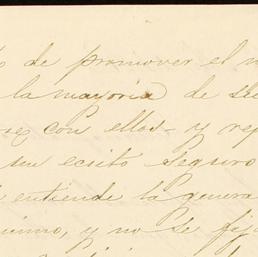 de promover el
la mayoria de
con ellos - y
un ecsito seguro
entiende la genera
, y no se fij